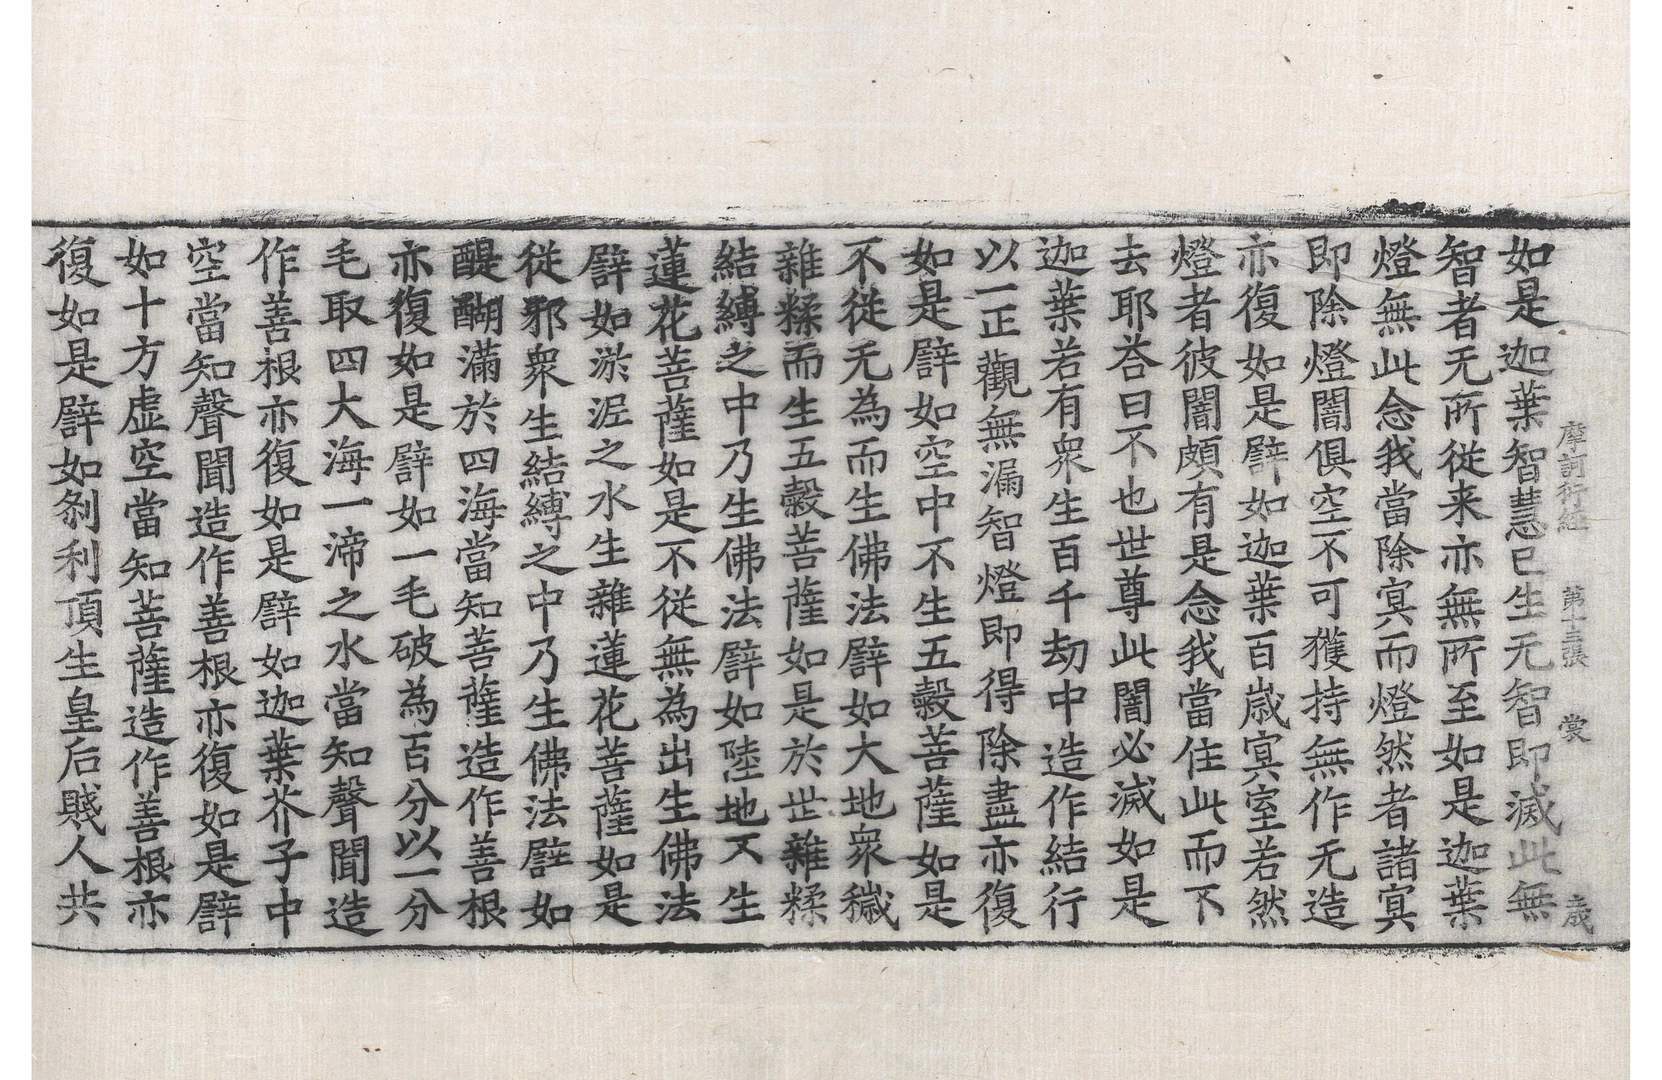 摩訶衍經 第十三張 裳 歳
如是迦葉智慧已生无智即滅此無
智者无所従来亦無所至如是迦葉
燈無此念我當除冥而燈然者諸冥
即除燈闇俱空不可獲持無作无造
亦復如是譬如迦葉百歳冥室若然
燈者彼闇頗有是念我當住此而不
去耶荅曰不也世尊此闇必滅如是
迦葉若有衆生百千劫中造作結行
以一正觀無漏智燈即得除盡亦復
如是譬如空中不生五糓菩薩如是
不従无為而生佛法譬如大地衆穢
雜糅而生五糓菩薩如是於世雜糅
結縛之中乃生佛法譬如陸地不生
蓮花菩薩如是不従無為出生佛法
譬如淤泥之水生雜蓮花菩薩如是
従邪衆生結縛之中乃生佛法譬如
醍醐滿於四海當知菩薩造作善根
亦復如是譬如一毛破為百分以一分
毛取四大海一渧之水當知聲聞造
作善根亦復如是譬如迦葉芥子中
空當知聲聞造作善根亦復如是譬
如十方虛空當知菩薩造作善根亦
復如是譬如刹利頂生皇后賤人共